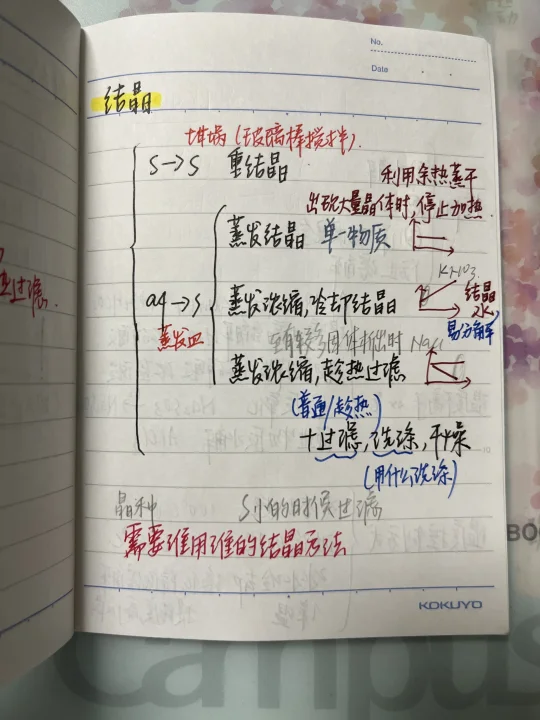 No.
Date
结晶
坩埚（玻璃棒搅拌）.
S→S 重结晶
利用余热蒸干
出现大量晶体时,停止加热.
蒸发结晶 单一物质
KNO3.
aq→S 蒸发浓缩,冷却结晶 结晶水
蒸发皿 易分解
至有较多固体析出时 NaCl
蒸发浓缩,趁热过滤
(普通/趁热)
+过滤,洗涤,干燥
(用什么洗涤)
晶种 S小的时候过滤
需要谁用谁的结晶方法
KOKUYO
过滤.
Campus